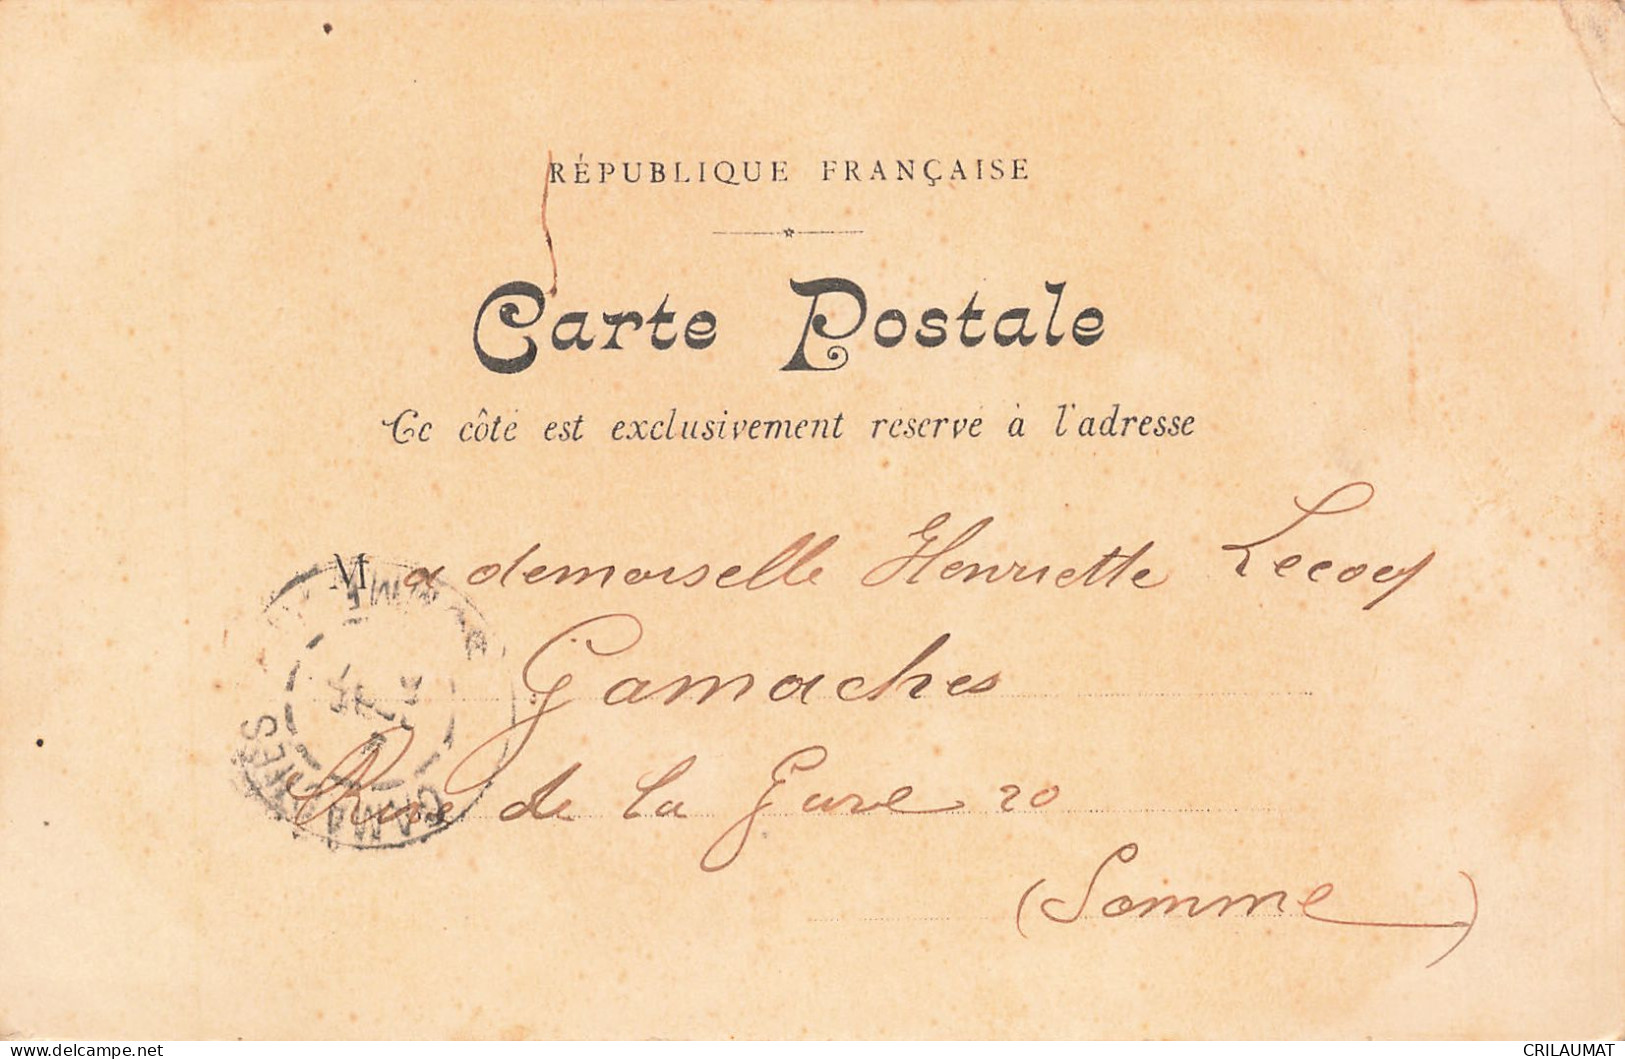 RÉPUBLIQUE FRANÇAISE
Carte Postale
Ce côté est exclusivement réservé à l'adresse
Mademoiselle Henriette Lecocq
Gamaches
Rue de la Gare 20
(Somme)
GAMACHES
SOMME
delcampe.net
CRILAUMAT